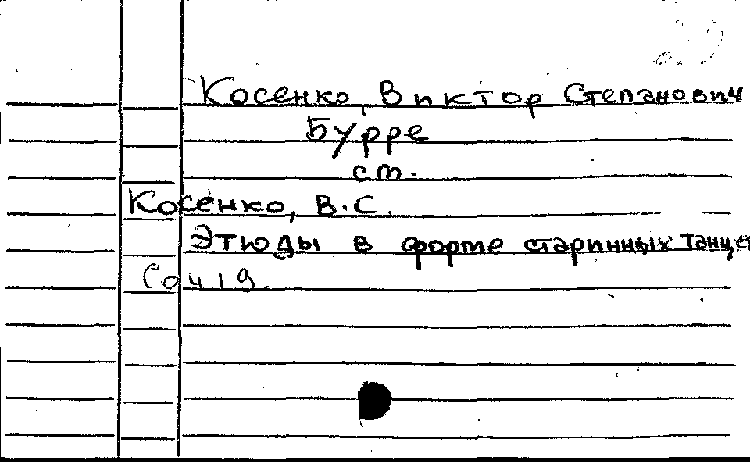 Косенко, Виктор Степанович
Бурре
ст.
Косенко, В.С.
Этюды в форме старинных танце
Соч 19.